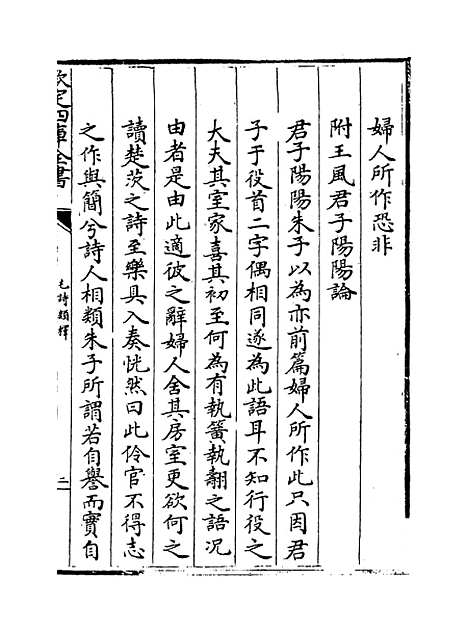 婦人所作恐非
附王風君子陽陽論
君子陽陽朱子以為亦前篇婦人所作此只因君
子于役首二字偶相同遂為此語耳不知行役之
大夫其室家喜其初至何為有執簧執翿之語况
由者是由此適彼之辭婦人舍其房室更欲何之
讀楚茨之詩至樂具入奏恍然曰此伶官不得志
之作與簡兮詩人相類朱子所謂若自譽而實自
欽定四庫全書
毛詩類釋
二